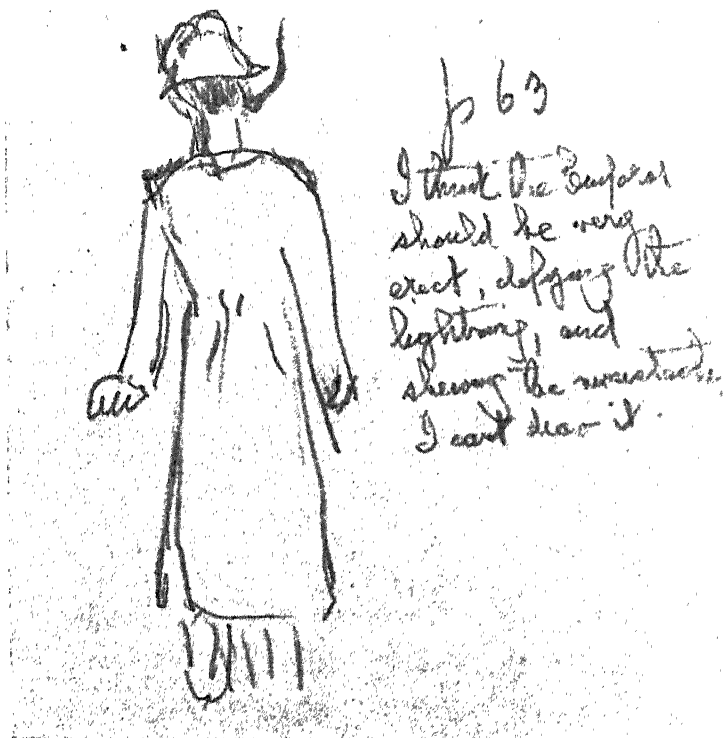 p 63
I think the Emperor
should be very
erect, defying the
lightning, and
shewing the
I cant draw it.